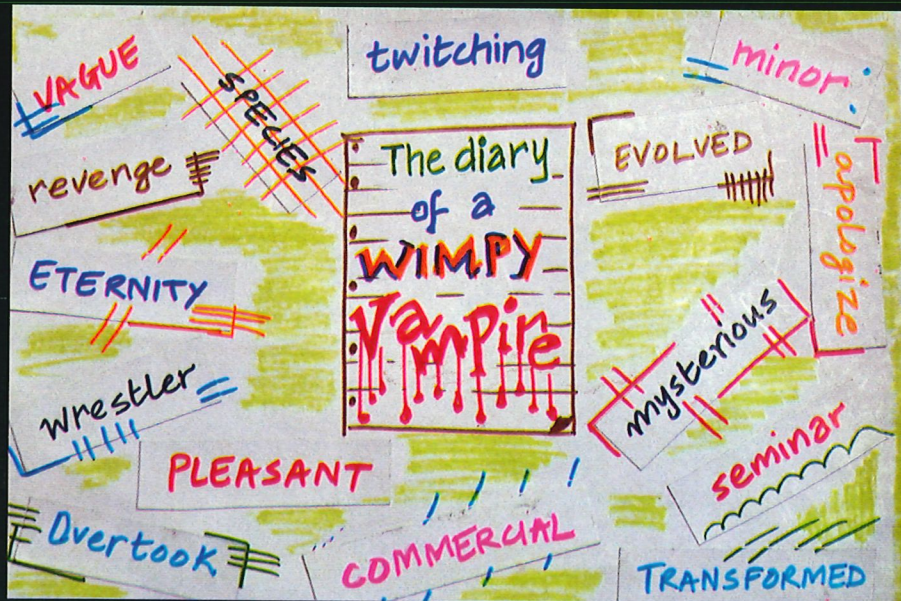 VAGUE
SPECIES
twitching
minor
revenge
The diary
of a
WIMPY
Vampire
EVOLVED
apologize
ETERNITY
mysterious
wrestler
PLEASANT
seminar
Overtook
COMMERCIAL
TRANSFORMED